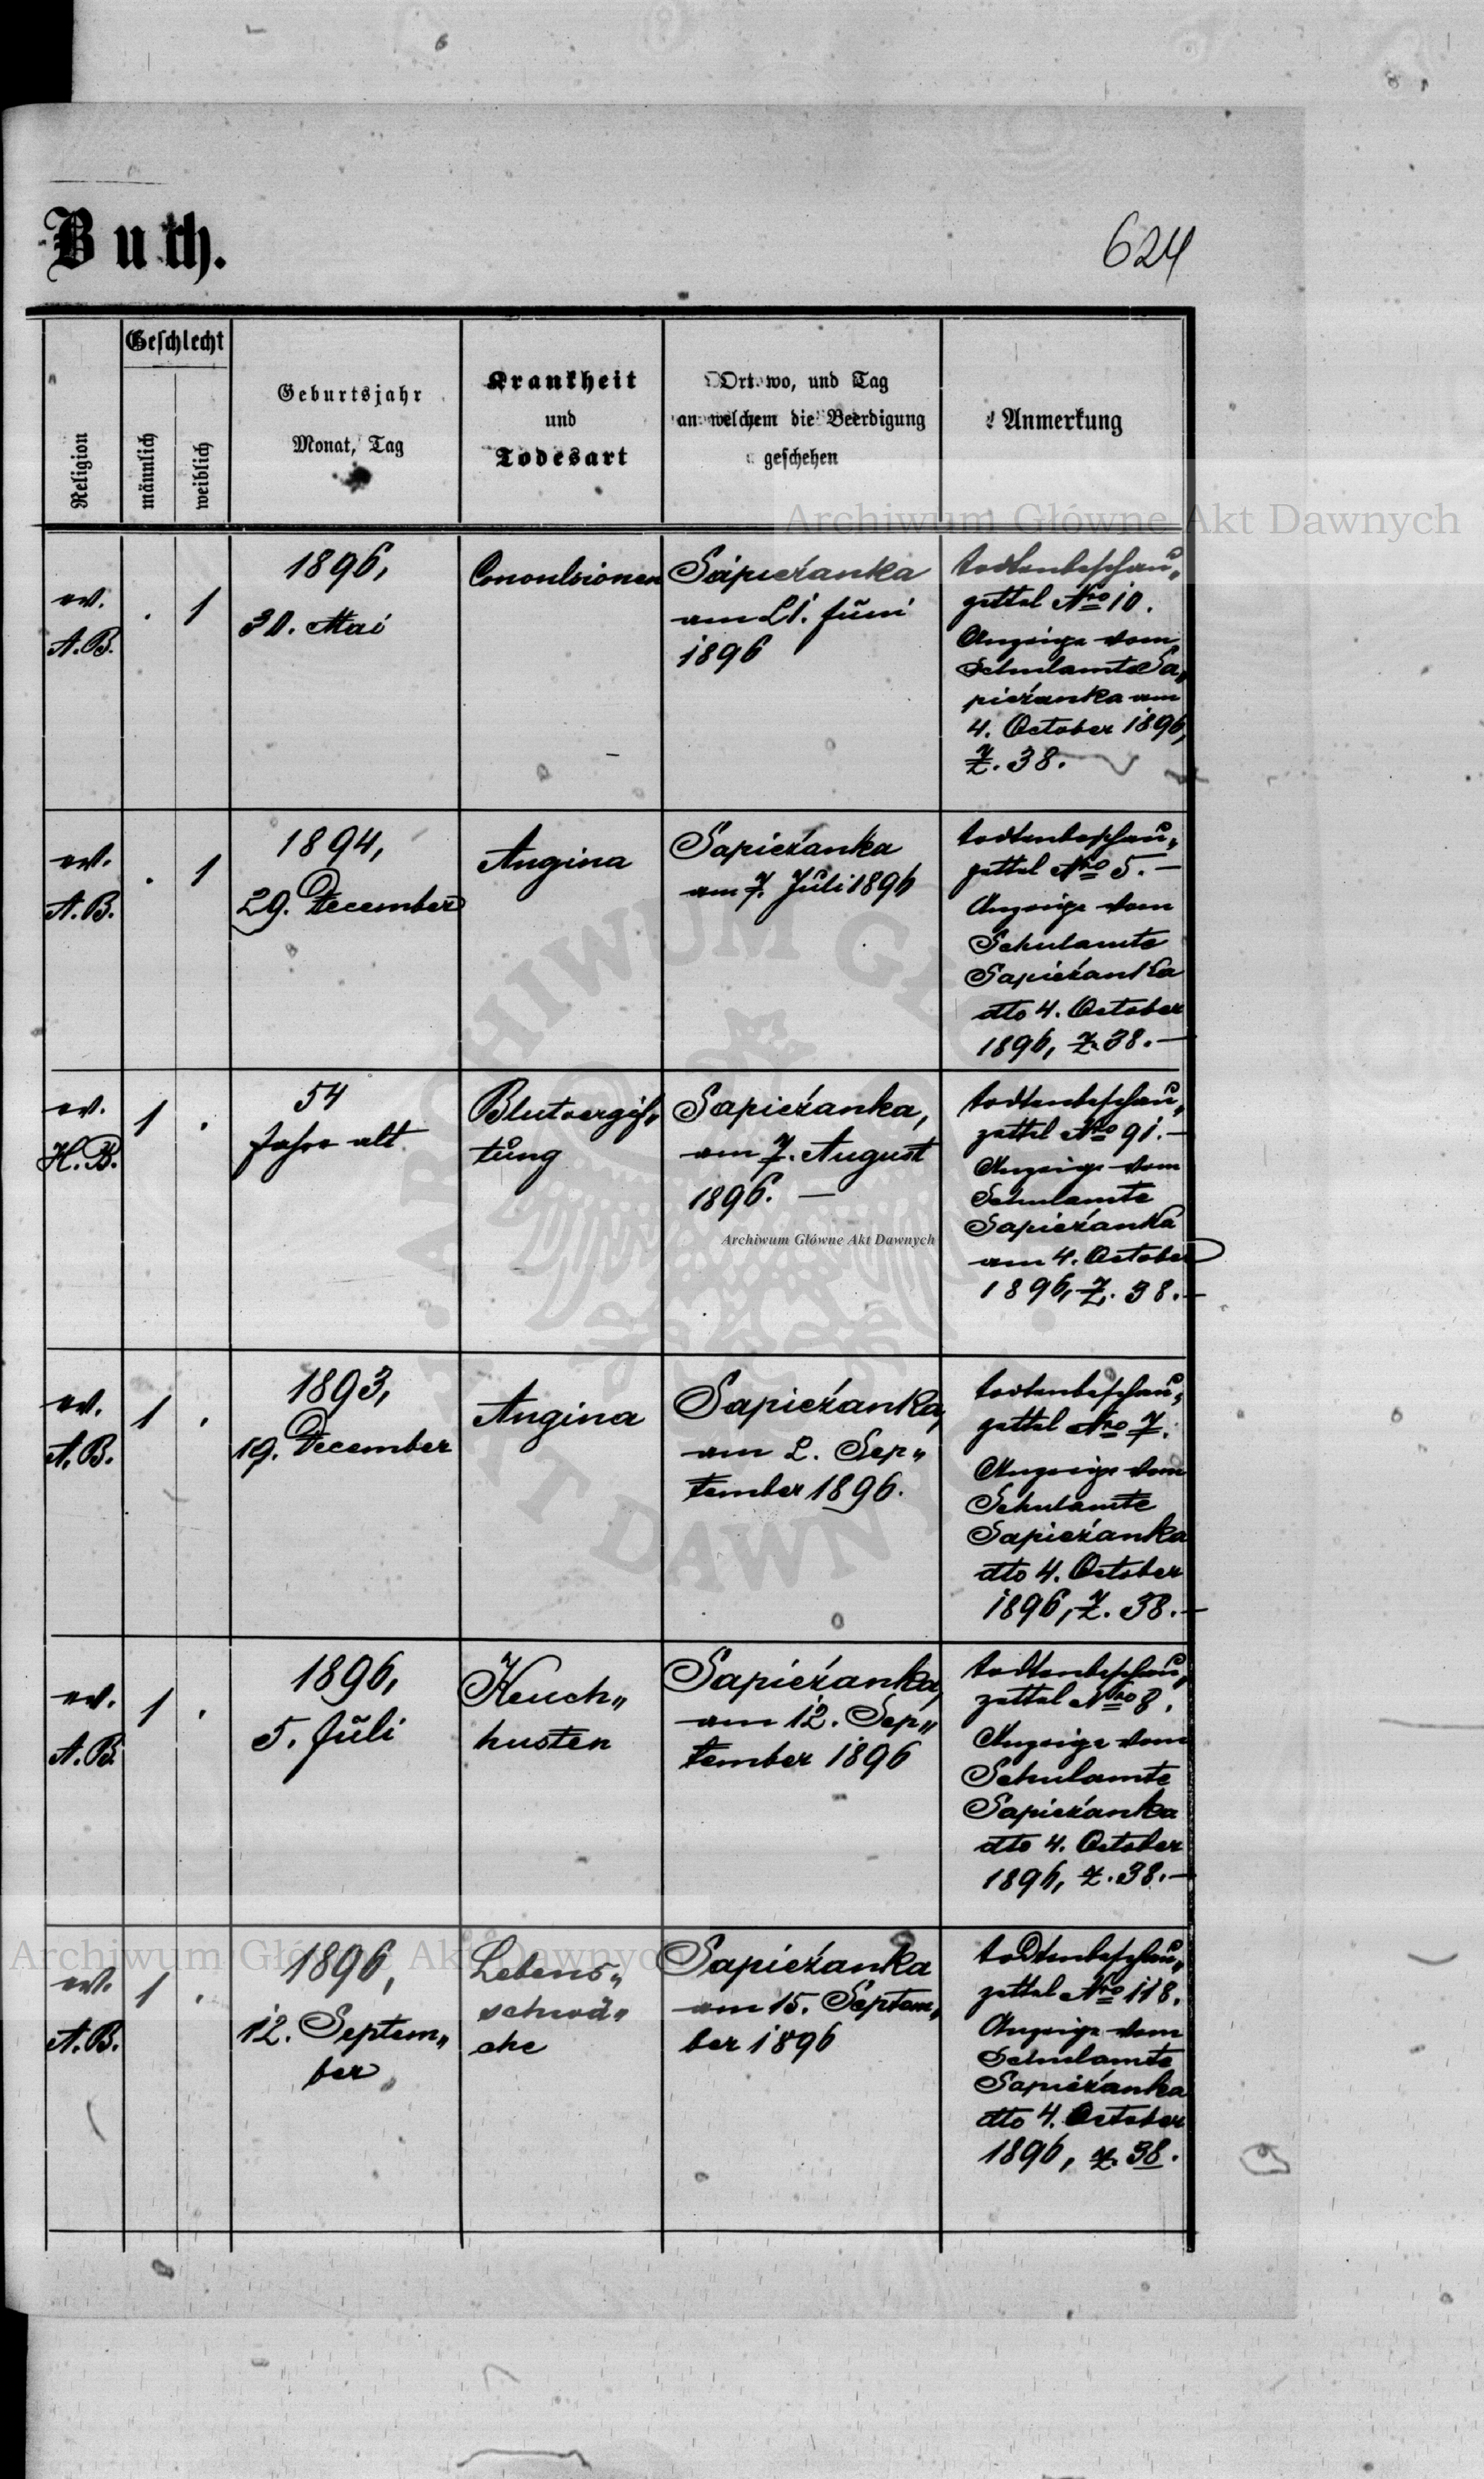 Buch.
624
Religion
Geschlecht
männlich
weiblich
Geburtsjahr
Monat, Tag
Krankheit
und
Todesart
Ort wo, und Tag
an welchem die Beerdigung
geschehen
Anmerkung
Archiwum Główne Akt Dawnych
ev.
A.B.
. 1
1896,
30. Mai
Convulsionen
Sapieżanka
am 21. Juni
1896
Todtenbeschau„
zettel Nro 10.
Anzeige vom
Schulamte Sa„
pieżanka am
4. October 1896,
Z. 38.
ev.
A.B.
. 1
1894,
29. December
Angina
Sapieżanka
am 7. Juli 1896
Todtenbeschau„
zettel Nro 5. —
Anzeige vom
Schulamte
Sapieżanka
dto 4. October
1896, Z. 38. —
ev.
H.B.
1 .
54
Jahre alt
Blutvergif„
tung
Sapieżanka,
am 7. August
1896. —
Archiwum Główne Akt Dawnych
Todtenbeschau„
zettel Nro 91. —
Anzeige vom
Schulamte
Sapieżanka
am 4. October
1896, Z. 38. —
ev.
A.B.
1 .
1893,
19. December
Angina
Sapieżanka,
am 2. Sep„
tember 1896.
Todtenbeschau„
zettel Nro 7.
Anzeige vom
Schulamte
Sapieżanka
dto 4. October
1896, Z. 38. —
ev.
A.B.
1 .
1896,
5. Juli
Keuch„
husten
Sapieżanka,
am 12. Sep„
tember 1896
Todtenbeschau„
zettel Nro 8.
Anzeige vom
Schulamte
Sapieżanka
dto 4. October
1896, Z. 38. —
Archiwum Główne Akt Dawnych
ev.
A.B.
1 .
1896,
12. Septem„
ber
Lebens„
schwä„
che
Sapieżanka
am 15. Septem„
ber 1896
Todtenbeschau„
zettel Nro 118.
Anzeige vom
Schulamte
Sapieżanka
dto 4. October
1896, Z. 38.
ARCHIWUM GŁÓWNE AKT DAWNYCH